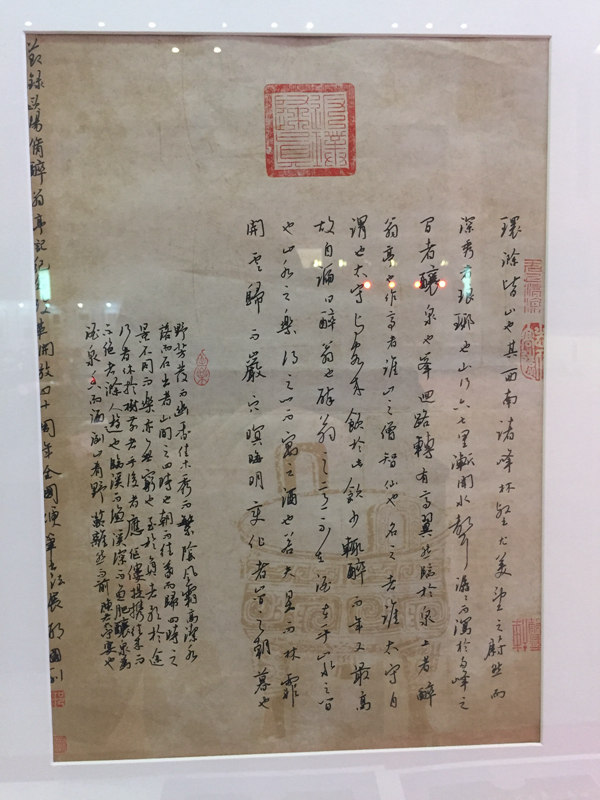 環滁皆山也其西南諸峰林壑尤美望之蔚然而
深秀者琅琊也山行六七里漸聞水聲潺潺而瀉於兩峰之
間者釀泉也峯回路轉有亭翼然臨於泉上者醉
翁亭也作亭者誰山之僧智仙也名之者誰太守自
謂也太守与客來飲於此飲少輒醉而年又最高
故自號曰醉翁也醉翁之意不在酒在乎山水之間
也山水之樂得之心而寓之酒也若夫日出而林霏
開雲歸而巖穴暝晦明變化者山間之朝暮也
野芳發而幽香佳木秀而繁陰風霜高潔水
落而石出者山間之四時也朝而往暮而歸四時之
景不同而樂亦無窮也至於負者歌於途
行者休於樹前者呼後者應傴僂提攜往來而
不絕者滁人遊也臨溪而漁溪深而魚肥釀泉為
酒泉香而酒洌山肴野蔌雜然而前陳太守宴也
錄歐陽脩醉翁亭記紀念改革開放四十周年全國硬筆書法展